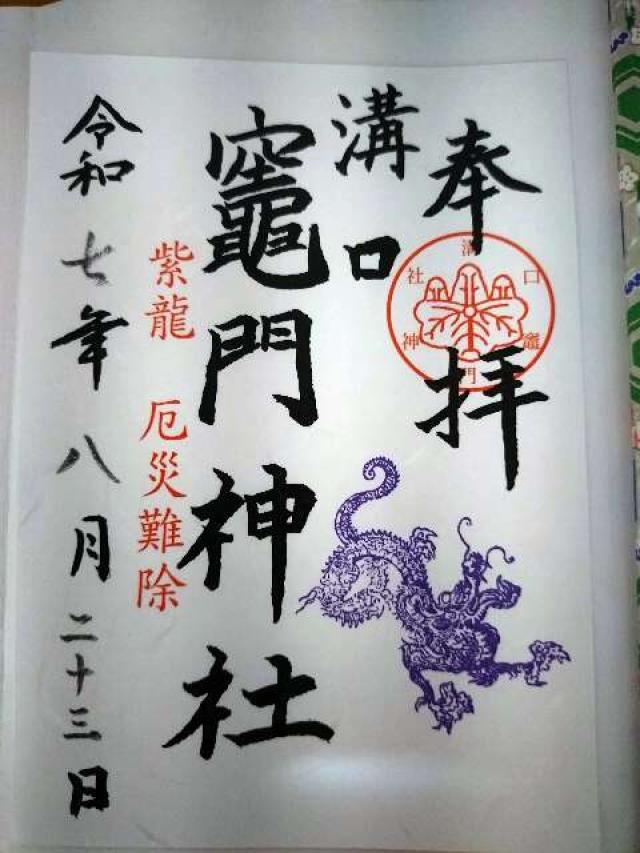 奉拝
溝口竈門神社
溝口竈門神社
紫龍 厄災難除
令和七年八月二十三日